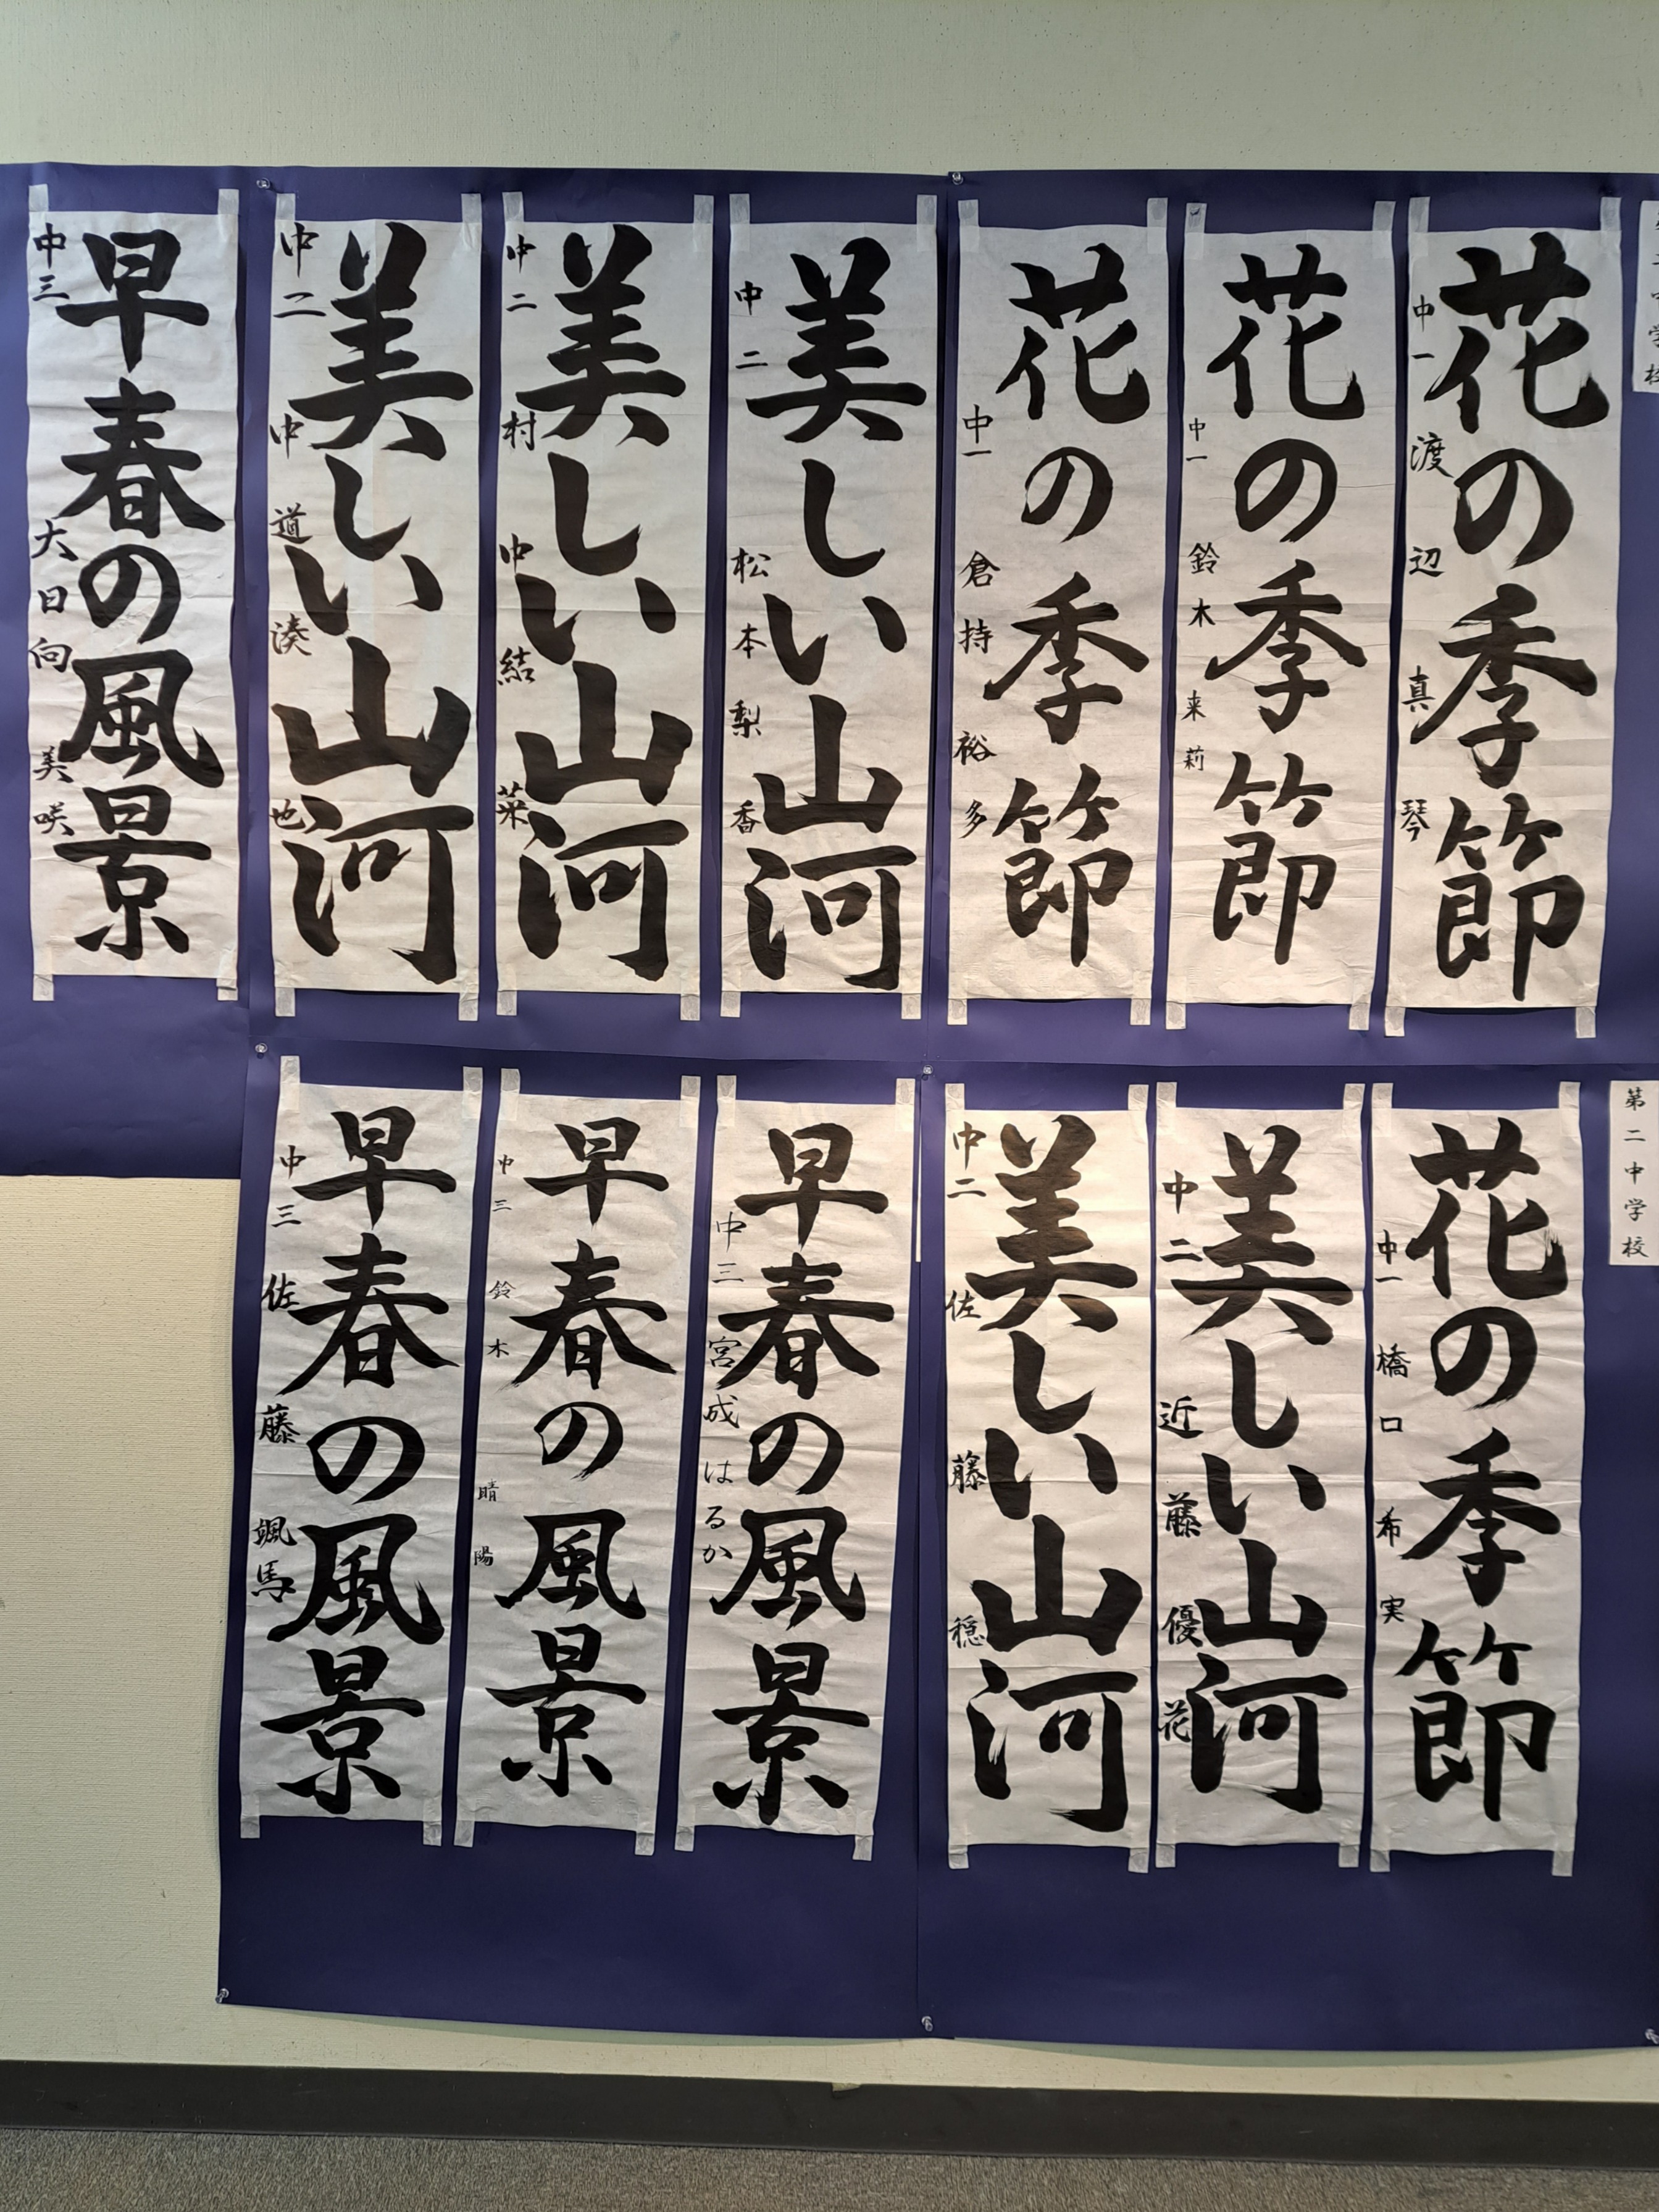 花の季節
中一 渡辺 真琴
花の季節
中一 鈴木 来莉
花の季節
中一 倉持 裕多
美しい山河
中二 松本 梨香
美しい山河
中二 村中 結菜
美しい山河
中二 中道 湊也
早春の風景
中三 大日向 美咲
第二中学校
花の季節
中一 橋口 希実
美しい山河
中二 近藤 優花
美しい山河
中二 佐藤 穏
早春の風景
中三 宮成 はるか
早春の風景
中三 鈴木 晴陽
早春の風景
中三 佐藤 颯馬